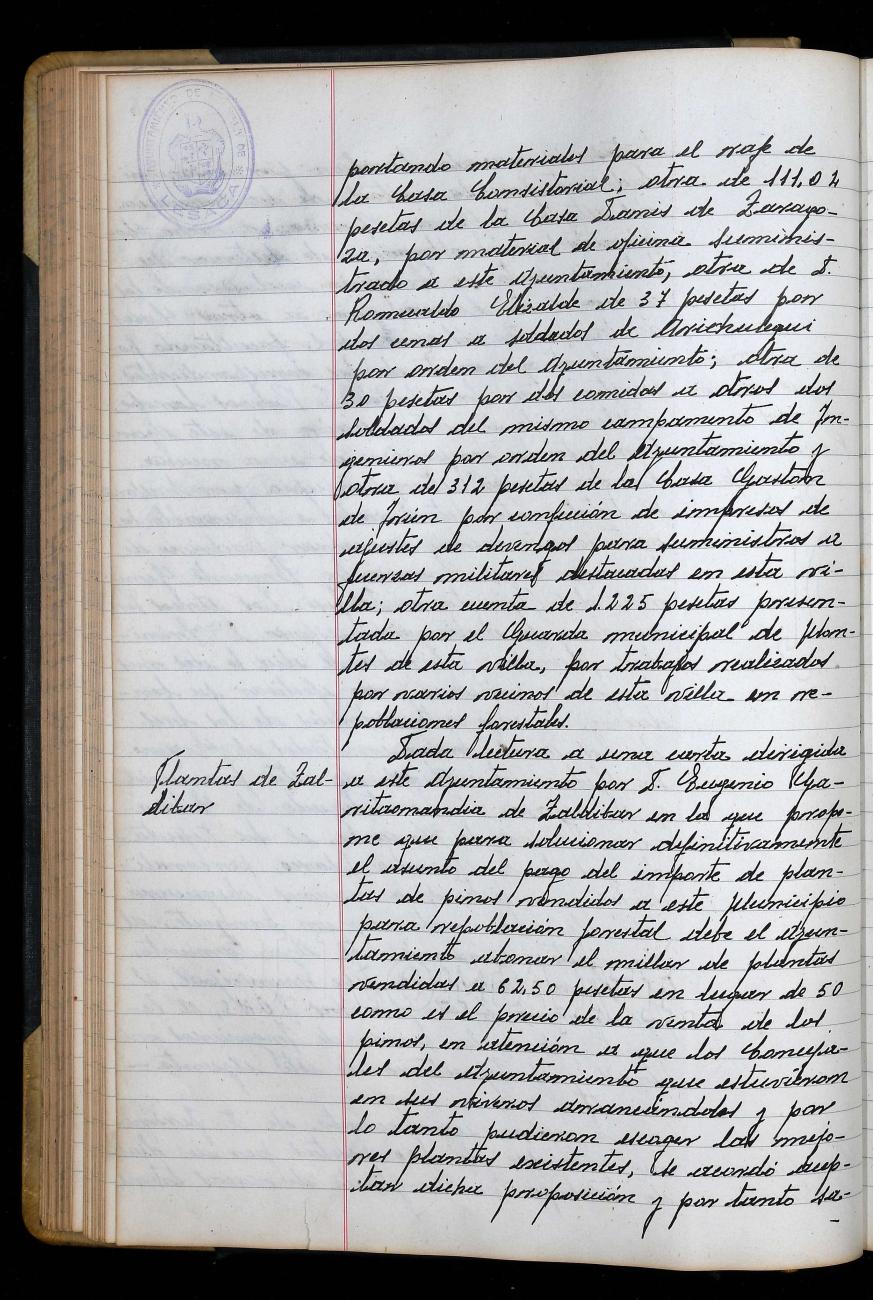 AYUNTAMIENTO DE
LESACA
portando materiales para el raje de
la Casa Consistorial; otra de 111,02
pesetas de la Casa Tamis de Zarago-
za, por material de oficina suminis-
trado a este Ayuntamiento, otra de D.
Romualdo Elizalde de 37 pesetas por
dos cenas a soldados de Arichulegui
por orden del Ayuntamiento; otra de
30 pesetas por dos comidas a otros dos
soldados del mismo campamento de In-
genieros por orden del Ayuntamiento y
otra de 312 pesetas de la Casa Gaston
de Irún por confección de impresos de
ajustes de devengos para suministros a
fuerzas militares destacadas en esta vi-
lla; otra cuenta de 1.225 pesetas presen-
tada por el Guarda municipal de Mon-
tes de esta villa, por trabajos realizados
por varios vecinos de esta villa en re-
poblaciones forestales.
Plantas de Zal-
dibar
Dada lectura a una carta dirigida
a este Ayuntamiento por D. Eugenio Ga-
ritaomandia de Zaldibar en la que propo-
ne que para solucionar definitivamente
el asunto del pago del importe de plan-
tas de pinos vendidos a este Municipio
para repoblación forestal debe el Ayun-
tamiento abonar el millar de plantas
vendidas a 62,50 pesetas en lugar de 50
como es el precio de la venta de los
pinos, en atención a que los Conceja-
les del Ayuntamiento que estuvieron
en sus viveros arrancándolos y por
lo tanto pudieron escoger las mejo-
res plantas existentes, se acordó acep-
tar dicha proposición y por tanto sa-